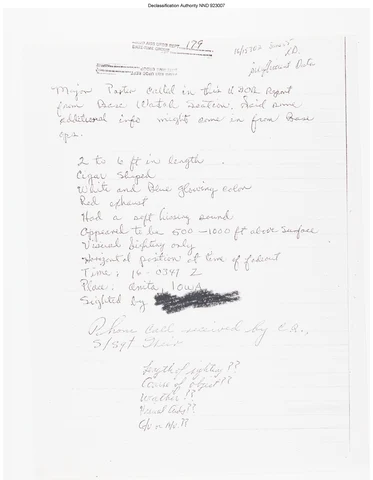 Declassification Authority NND 923007
179
Insufficient Data
Major Porter called in this UFOB Report
from Base Watch Section. Said some
additional info might come in from Base
ops.
2 to 6 ft in length
Cigar Shaped
White and Blue glowing color
Red exhaust
Had a soft hissing sound
Appeared to be 500 - 1000 ft above surface
Visual Sighting only
Horizontal position at time of fadeout
Time: 16 - 0347 Z
Place: Anita, Iowa
Sighted by
Phone call received by
S/Sgt
Length of sighting ??
Course of object ??
Weather ??
Visual Only ??